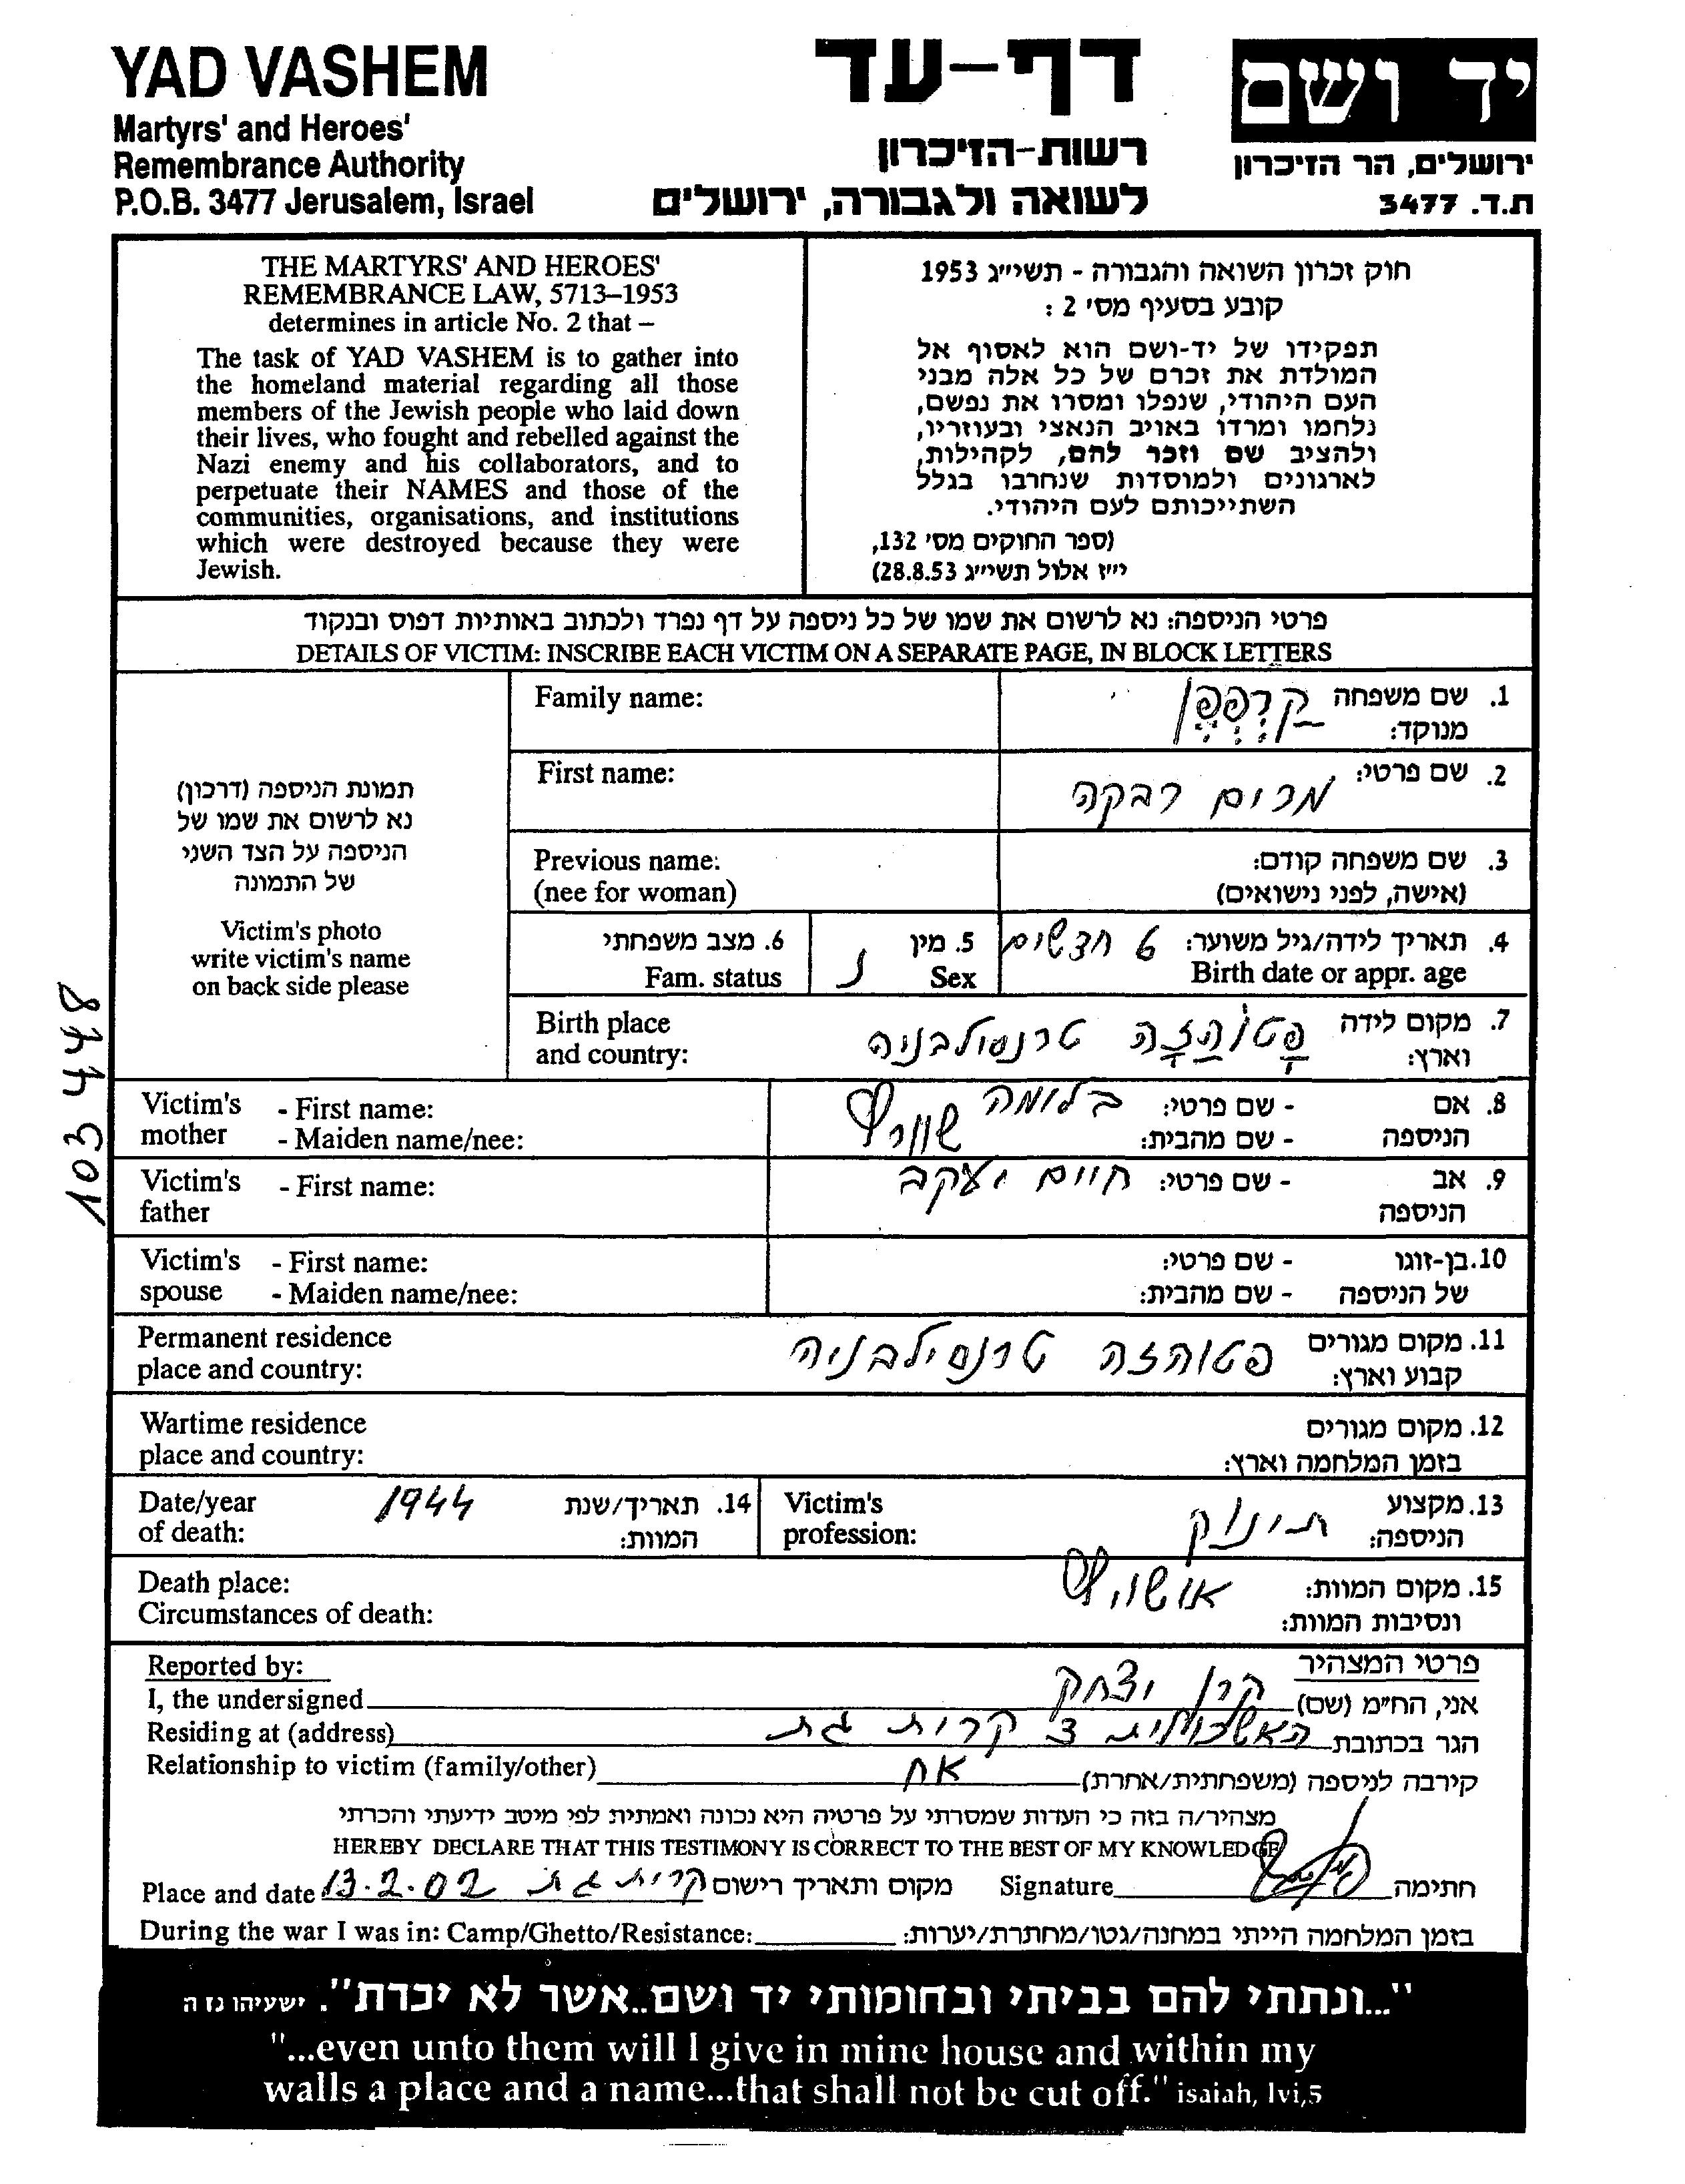 YAD VASHEM
Martyrs' and Heroes'
Remembrance Authority
P.O.B. 3477 Jerusalem, Israel
דף-עד
רשות-הזיכרון
לשואה ולגבורה, ירושלים
יד ושם
ירושלים, הר הזיכרון
ת.ד. 3477
THE MARTYRS' AND HEROES'
REMEMBRANCE LAW, 5713–1953
determines in article No. 2 that –
The task of YAD VASHEM is to gather into
the homeland material regarding all those
members of the Jewish people who laid down
their lives, who fought and rebelled against the
Nazi enemy and his collaborators, and to
perpetuate their NAMES and those of the
communities, organisations, and institutions
which were destroyed because they were
Jewish.
חוק זכרון השואה והגבורה - תשי״ג 1953
קובע בסעיף מס׳ 2 :
תפקידו של יד-ושם הוא לאסוף אל
המולדת את זכרם של כל אלה מבני
העם היהודי, שנפלו ומסרו את נפשם,
נלחמו ומרדו באויב הנאצי ובעוזריו,
ולהציב שם וזכר להם, לקהילות,
לארגונים ולמוסדות שנחרבו בגלל
השתייכותם לעם היהודי.
(ספר החוקים מס׳ 132,
י״ז אלול תשי״ג 28.8.53)
פרטי הניספה: נא לרשום את שמו של כל ניספה על דף נפרד ולכתוב באותיות דפוס ובנקוד
DETAILS OF VICTIM: INSCRIBE EACH VICTIM ON A SEPARATE PAGE, IN BLOCK LETTERS
תמונת הניספה (דרכון)
נא לרשום את שמו של
הניספה על הצד השני
של התמונה
Victim's photo
write victim's name
on back side please
1034478
Family name:
1. שם משפחה קרפפן
מנוקד:
First name:
2. שם פרטי: מרים רבקה
Previous name:
(nee for woman)
3. שם משפחה קודם:
(אישה, לפני נישואים)
4. תאריך לידה/גיל משוער: 6 חדשים
Birth date or appr. age
5. מין
Sex נ
6. מצב משפחתי
Fam. status
Birth place
and country:
7. מקום לידה פטוהזה טרנסילבניה
וארץ:
Victim's - First name:
mother - Maiden name/nee:
8. אם - שם פרטי: בלומה
הניספה - שם מהבית: שוורץ
Victim's - First name:
father
9. אב - שם פרטי: חיים יעקב
הניספה
Victim's - First name:
spouse - Maiden name/nee:
10. בן-זוגו - שם פרטי:
של הניספה - שם מהבית:
Permanent residence
place and country:
11. מקום מגורים פטוהזה טרנסילבניה
קבוע וארץ:
Wartime residence
place and country:
12. מקום מגורים
בזמן המלחמה וארץ:
Date/year
of death:
14. תאריך/שנת 1944
המוות:
Victim's
profession:
13. מקצוע תינוק
הניספה:
Death place:
Circumstances of death:
15. מקום המוות: אושויץ
ונסיבות המוות:
Reported by:
פרטי המצהיר
I, the undersigned
אני, הח״מ (שם) קרן יצחק
Residing at (address)
הגר בכתובת האשכולית 3 קרית גת
Relationship to victim (family/other)
קירבה לניספה (משפחתית/אחרת) אח
מצהיר/ה בזה כי העדות שמסרתי על פרטיה היא נכונה ואמתית לפי מיטב ידיעתי והכרתי
HEREBY DECLARE THAT THIS TESTIMONY IS CORRECT TO THE BEST OF MY KNOWLEDGE
Place and date 13.2.02 קרית גת מקום ותאריך רישום
Signature חתימה
During the war I was in: Camp/Ghetto/Resistance:
בזמן המלחמה הייתי במחנה/גטו/מחתרת/יערות:
"...ונתתי להם בביתי ובחומותי יד ושם..אשר לא יכרת". ישעיהו נז ה
"...even unto them will I give in mine house and within my
walls a place and a name...that shall not be cut off." isaiah, lvi,5